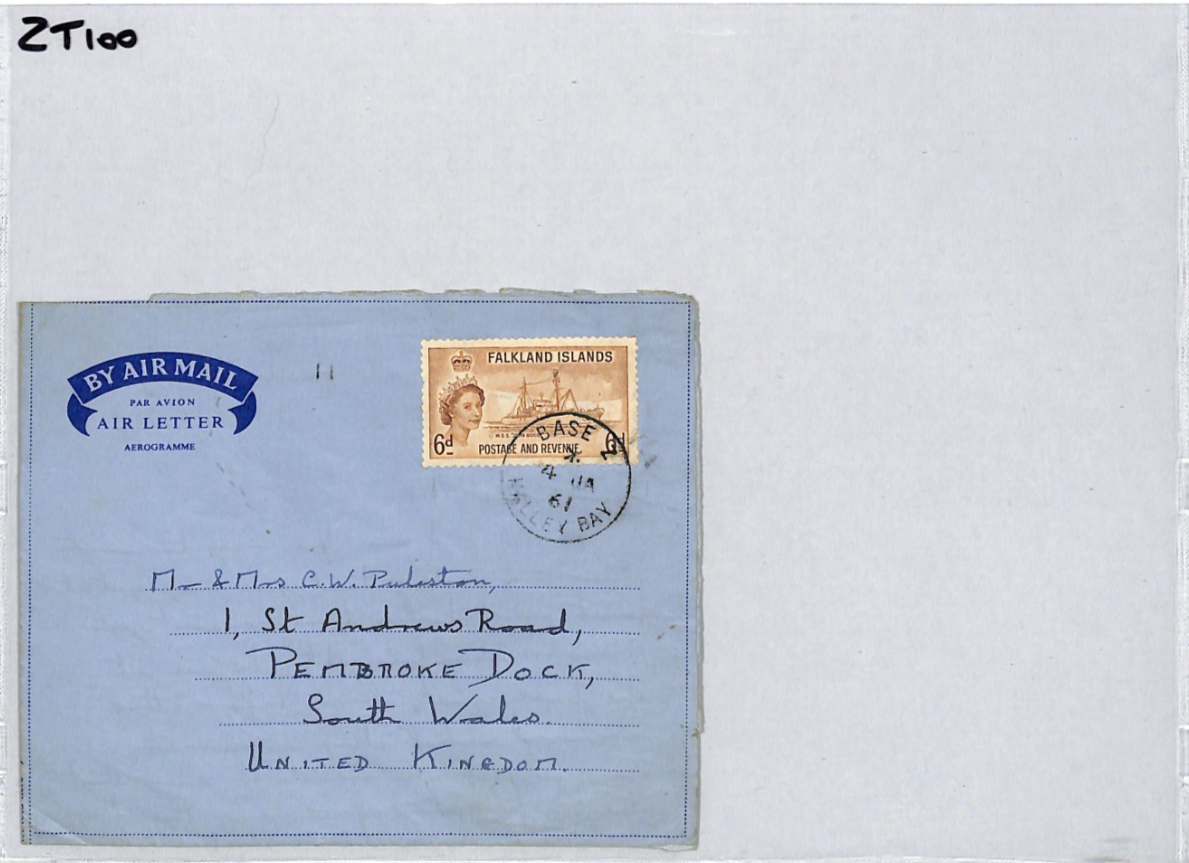 ZT100
BY AIR MAIL
PAR AVION
AIR LETTER
AEROGRAMME
11
FALKLAND ISLANDS
6d
POSTAGE AND REVENUE
BASE Z
4 JA
61
HALLEY BAY
Mr & Mrs C.W. Puleston,
1, St Andrews Road,
PEMBROKE DOCK,
South Wales.
UNITED KINGDOM.